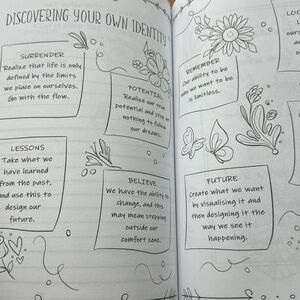 DISCOVERING YOUR OWN IDENTITY
SURRENDER
Realize that life is only
defined by the limits
we place on ourselves.
Go with the flow.
POTENTIAL
Realize our true
potential and stop at
nothing to follow
our dreams.
LESSONS
Take what we
have learned
from the past,
and use this to
design our
future.
BELIEVE
We have the ability to
change, and this
may mean stepping
outside our
comfort zone.
REMEMBER
Our ability to be
who we want to be
is limitless.
FUTURE
Create what we want
by visualising it and
then designing it the
way we see it
happening.